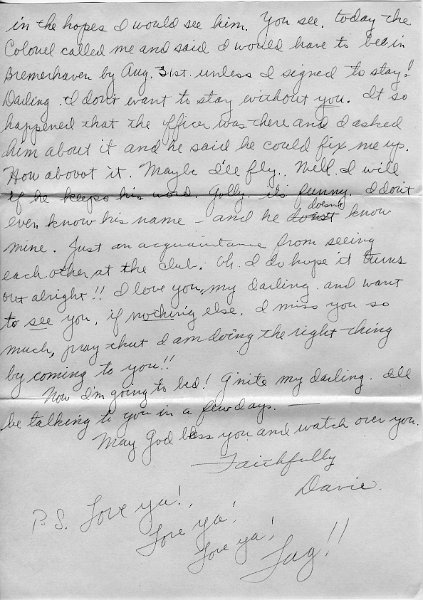 in the hopes I would see him. You see, today the
Colonel called me and said I would have to be in
Bremerhaven by Aug. 31st. unless I signed to stay!
Darling I don't want to stay without you. It so
happened that the officer was there and I asked
him about it and he said he could fix me up.
How about it. Maybe I'll fly. Well I will
if he keeps his word. Golly its funny, I don't
even know his name - and he doesn't know
mine. Just an acquaintance from seeing
each other at the club. Oh. I do hope it turns
out alright!! I love you, my darling and want
to see you, if nothing else. I miss you so
much, pray that I am doing the right thing
by coming to you!!
Now I'm going to bed! G'nite my darling. I'll
be talking to you in a few days. —
May God bless you and watch over you.
Faithfully
Davie.
P.S. Love ya!,
Love ya!
Love ya!